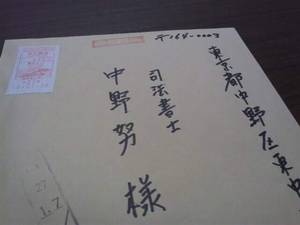 〒164-0003
東京都中野区東中
司法書士
中野努 様
27